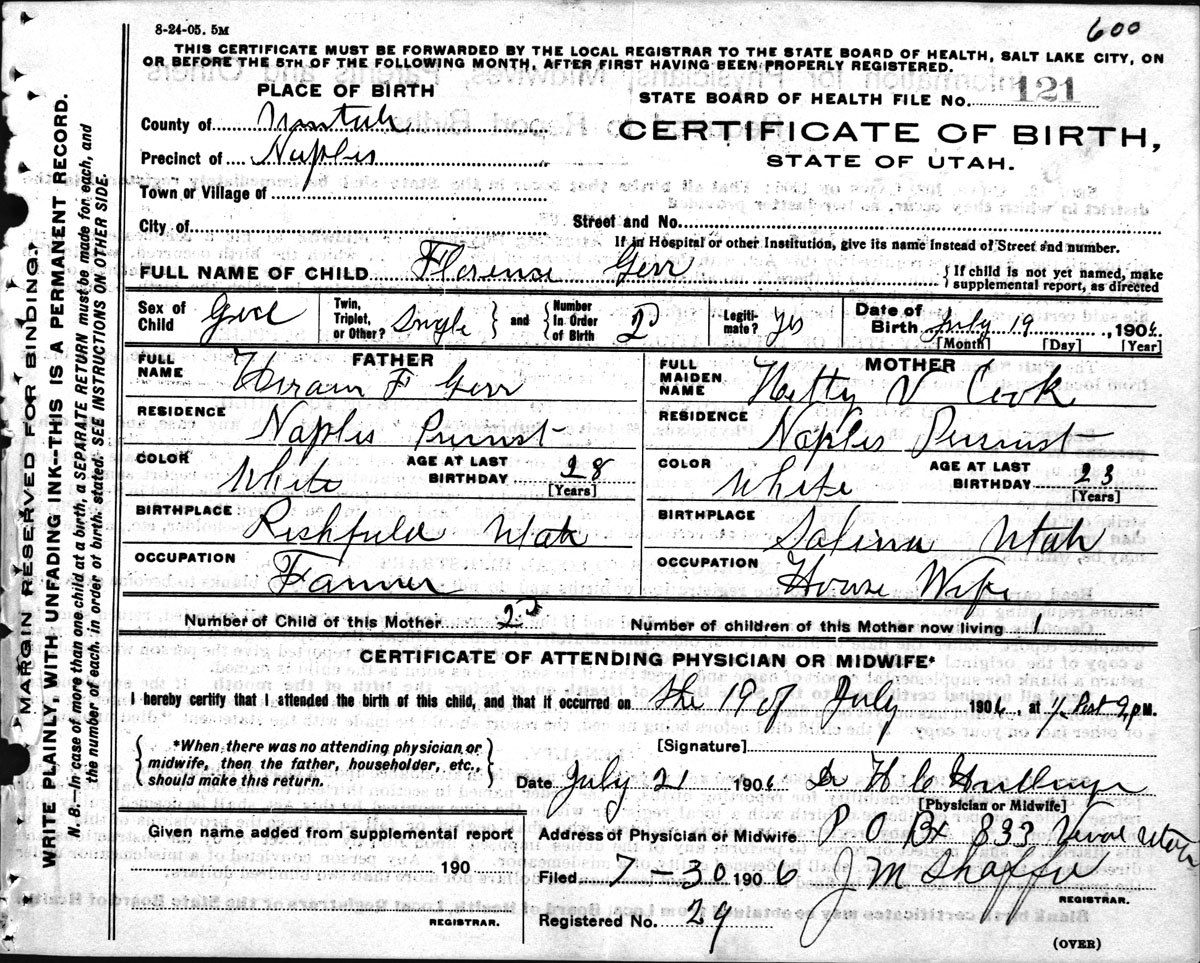 8-24-05. 5M
600
THIS CERTIFICATE MUST BE FORWARDED BY THE LOCAL REGISTRAR TO THE STATE BOARD OF HEALTH, SALT LAKE CITY, ON
OR BEFORE THE 5TH OF THE FOLLOWING MONTH, AFTER FIRST HAVING BEEN PROPERLY REGISTERED.
PLACE OF BIRTH
STATE BOARD OF HEALTH FILE No. 121
County of
CERTIFICATE OF BIRTH,
Precinct of Naples
STATE OF UTAH.
Town or Village of
City of
Street and No.
If in Hospital or other Institution, give its name instead of Street and number.
FULL NAME OF CHILD Florense Gerr
{If child is not yet named, make
supplemental report, as directed
Sex of Child Girl
Twin, Triplet, or Other? Single } and { Number In Order of Birth 2
Legiti-mate? Yes
Date of Birth July 19, 1906
[Month] [Day] [Year]
FATHER
FULL NAME Hiram F Gerr
RESIDENCE Naples
COLOR White
AGE AT LAST BIRTHDAY 28
[Years]
BIRTHPLACE Richfield Utah
OCCUPATION Farmer
MOTHER
FULL MAIDEN NAME Hetty V Cook
RESIDENCE Naples
COLOR White
AGE AT LAST BIRTHDAY 23
[Years]
BIRTHPLACE Salina Utah
OCCUPATION House Wife
Number of Child of this Mother 2d
Number of children of this Mother now living 1
CERTIFICATE OF ATTENDING PHYSICIAN OR MIDWIFE*
I hereby certify that I attended the birth of this child, and that it occurred on the 19 of July 1906, at ½ Past 9 P.M.
{*When there was no attending physician or
midwife, then the father, householder, etc.,
should make this return.}
[Signature]
Date July 21 1906 Dr H C
[Physician or Midwife]
Given name added from supplemental report
190
REGISTRAR.
Address of Physician or Midwife P O Bx 833 Vernal Utah
Filed 7-30 1906 J M Shaffer
REGISTRAR.
Registered No. 29
(OVER)
MARGIN RESERVED FOR BINDING.
WRITE PLAINLY, WITH UNFADING INK--THIS IS A PERMANENT RECORD.
N. B.--In case of more than one child at a birth, a SEPARATE RETURN must be made for each, and
the number of each, in order of birth, stated. SEE INSTRUCTIONS ON OTHER SIDE.